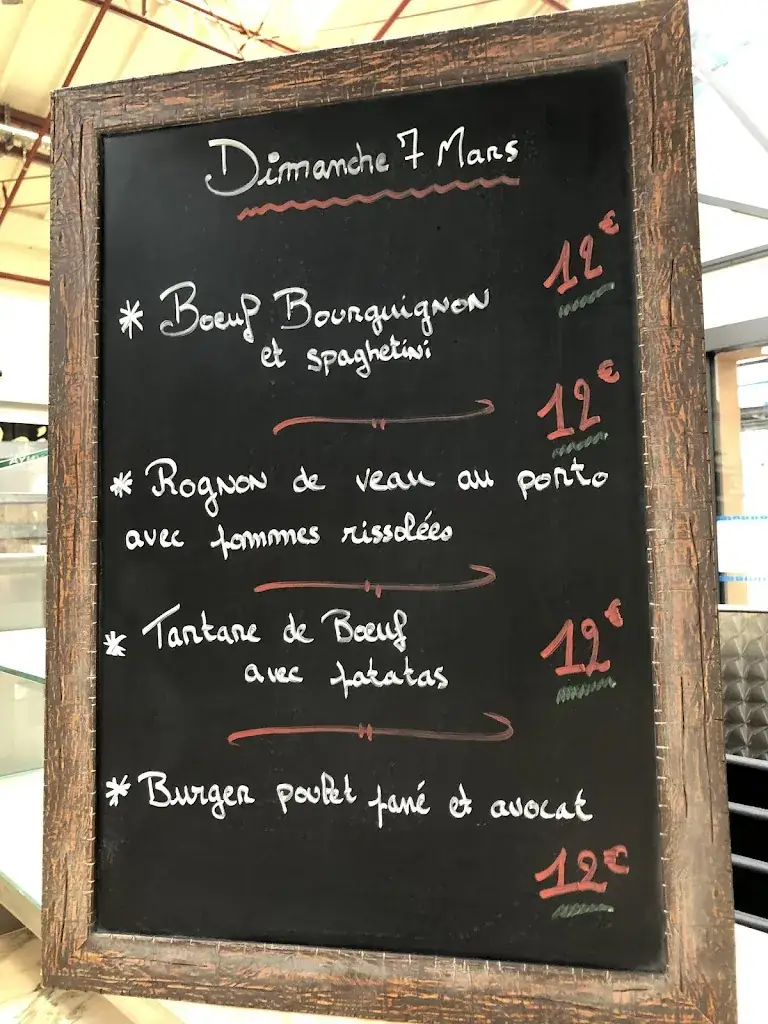 Dimanche 7 Mars
12€
* Boeuf Bourguignon
et spaghetini
12€
* Rognon de veau au porto
avec pommes rissolées
* Tartare de Boeuf
12€
avec patatas
* Burger poulet pané et avocat
12€